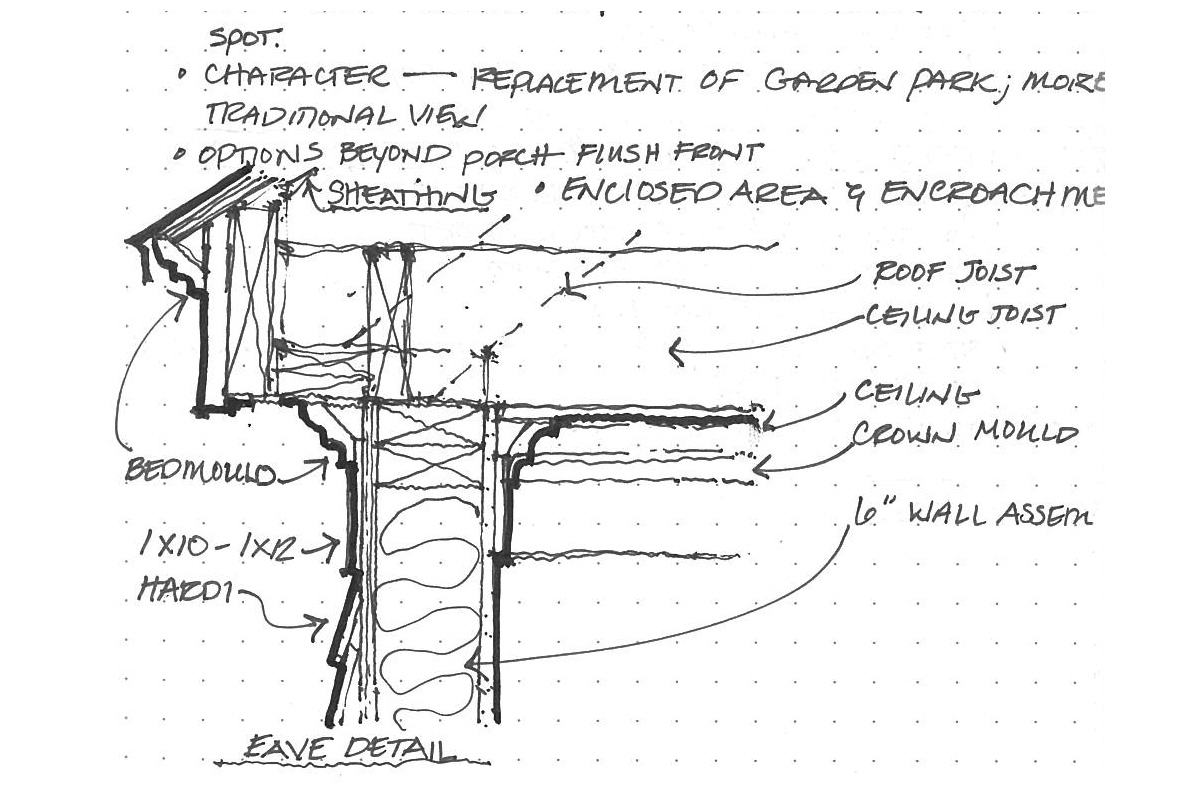 SPOT.
• CHARACTER — REPLACEMENT OF GARDEN PARK; MORE
TRADITIONAL VIEW
• OPTIONS BEYOND PORCH FLUSH FRONT
SHEATHING • ENCLOSED AREA & ENCROACHME
ROOF JOIST
CEILING JOIST
CEILING
CROWN MOULD
BEDMOULD
6" WALL ASSEM
1X10 - 1X12
HARDI
EAVE DETAIL